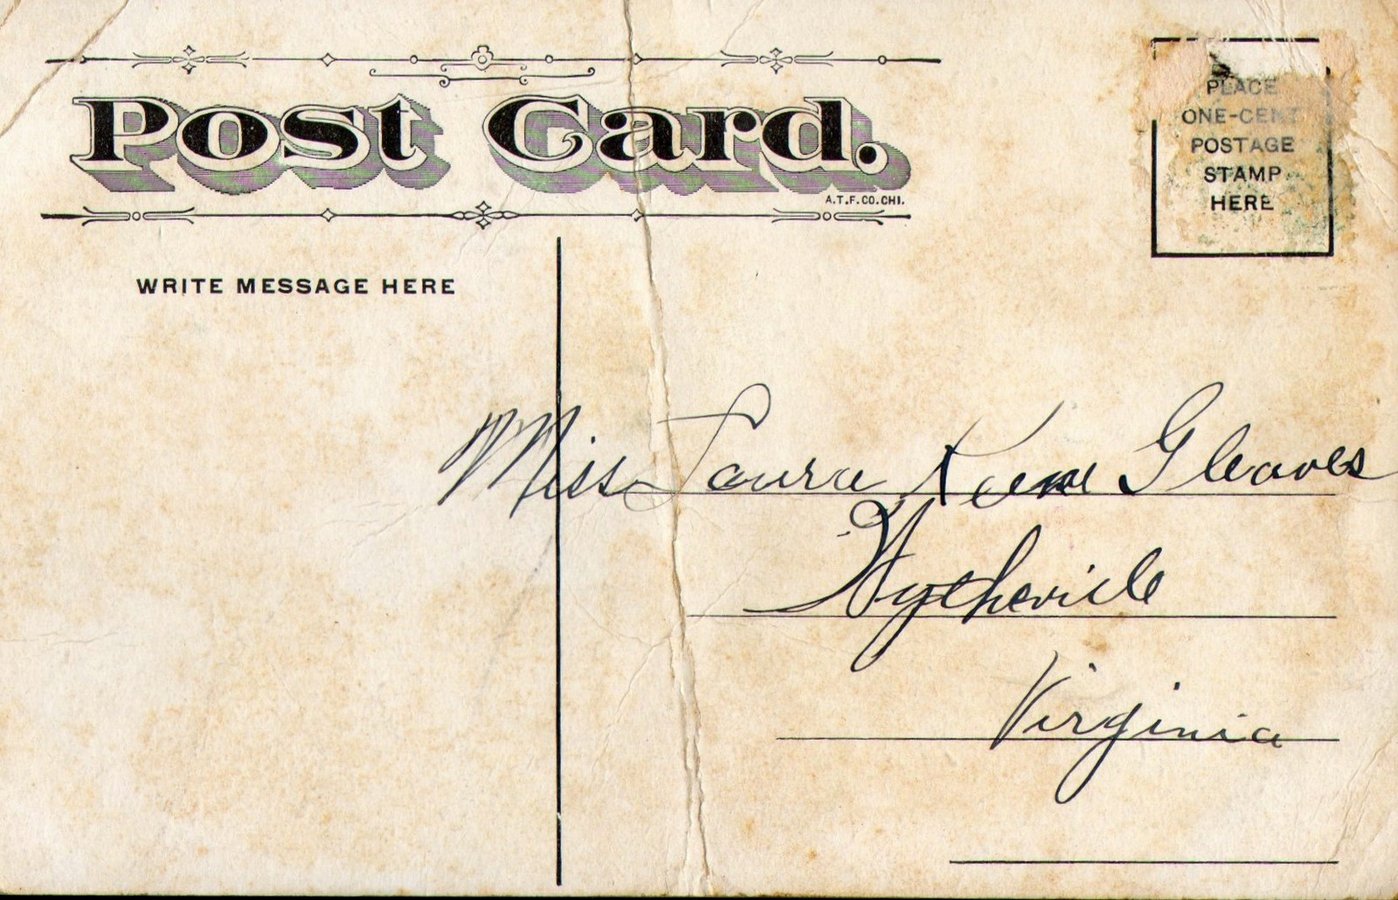 Post Card.
A.T.F.CO.CHI.
PLACE
ONE-CENT
POSTAGE
STAMP
HERE
WRITE MESSAGE HERE
Miss Laura Keene Gleaves
Wytheville
Virginia